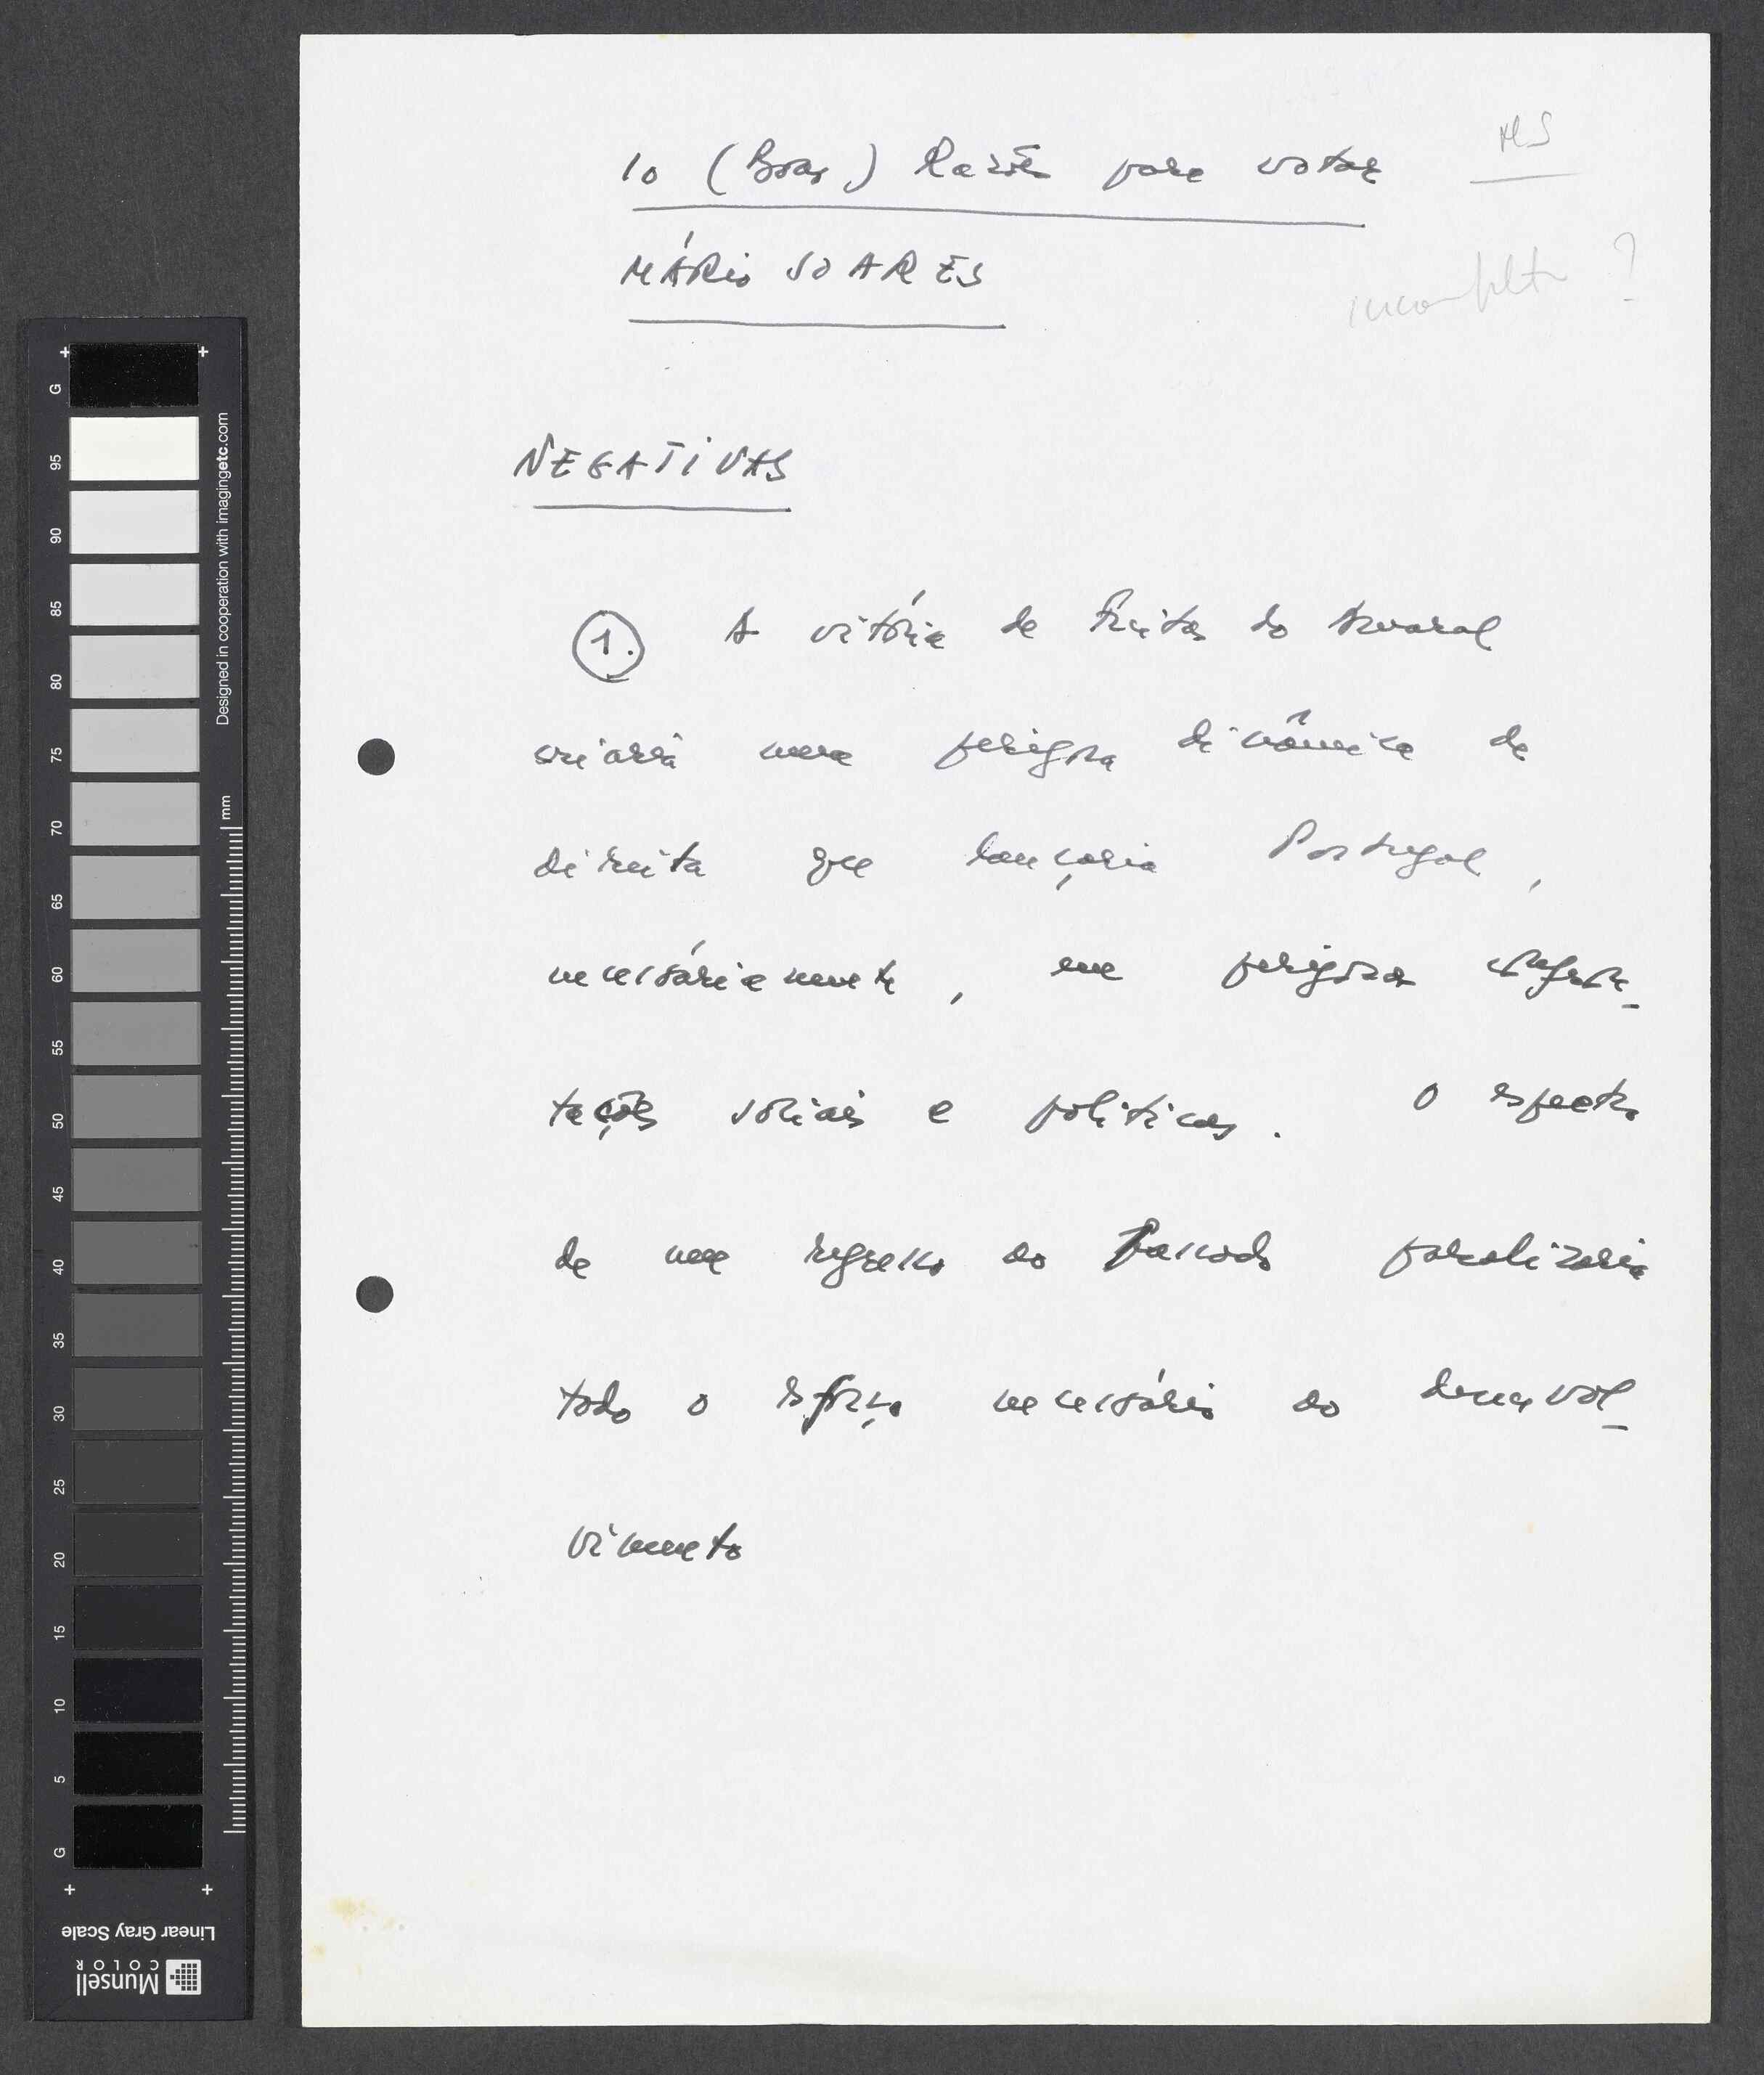 10 (Boas) Razões para votar
MS
MÁRIO SOARES
incompleto ?
NEGATIVAS
1. A vitória de Freitas do Amaral
criará uma perigosa dinâmica de
direita que lançaria Portugal,
necessáriamente, em perigosas
tações sociais e políticas. O espectro
de um regresso ao passado paralizaria
todo o esforço necessário ao desenvol-
vimento
G
95
90
85
80
75
70
65
60
55
50
45
40
35
30
25
20
15
10
5
G
mm
Designed in cooperation with imagingetc.com
Linear Gray Scale
Munsell
COLOR